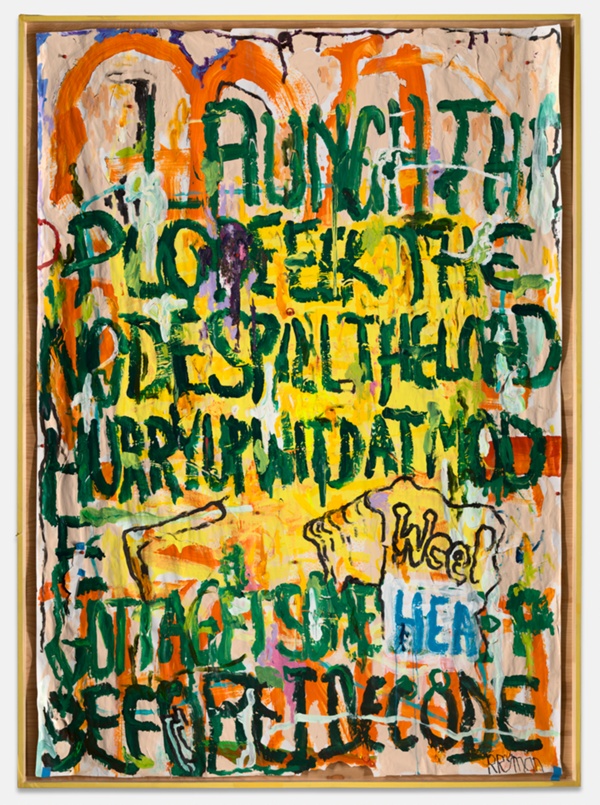 LAUNCH
PLOPEEK THE
NODE SPILL THE LOAD
HURRY UP WIT DAT MOD
E
Weel
GOTTA GET SOME HEA
BEFORE I DECODE